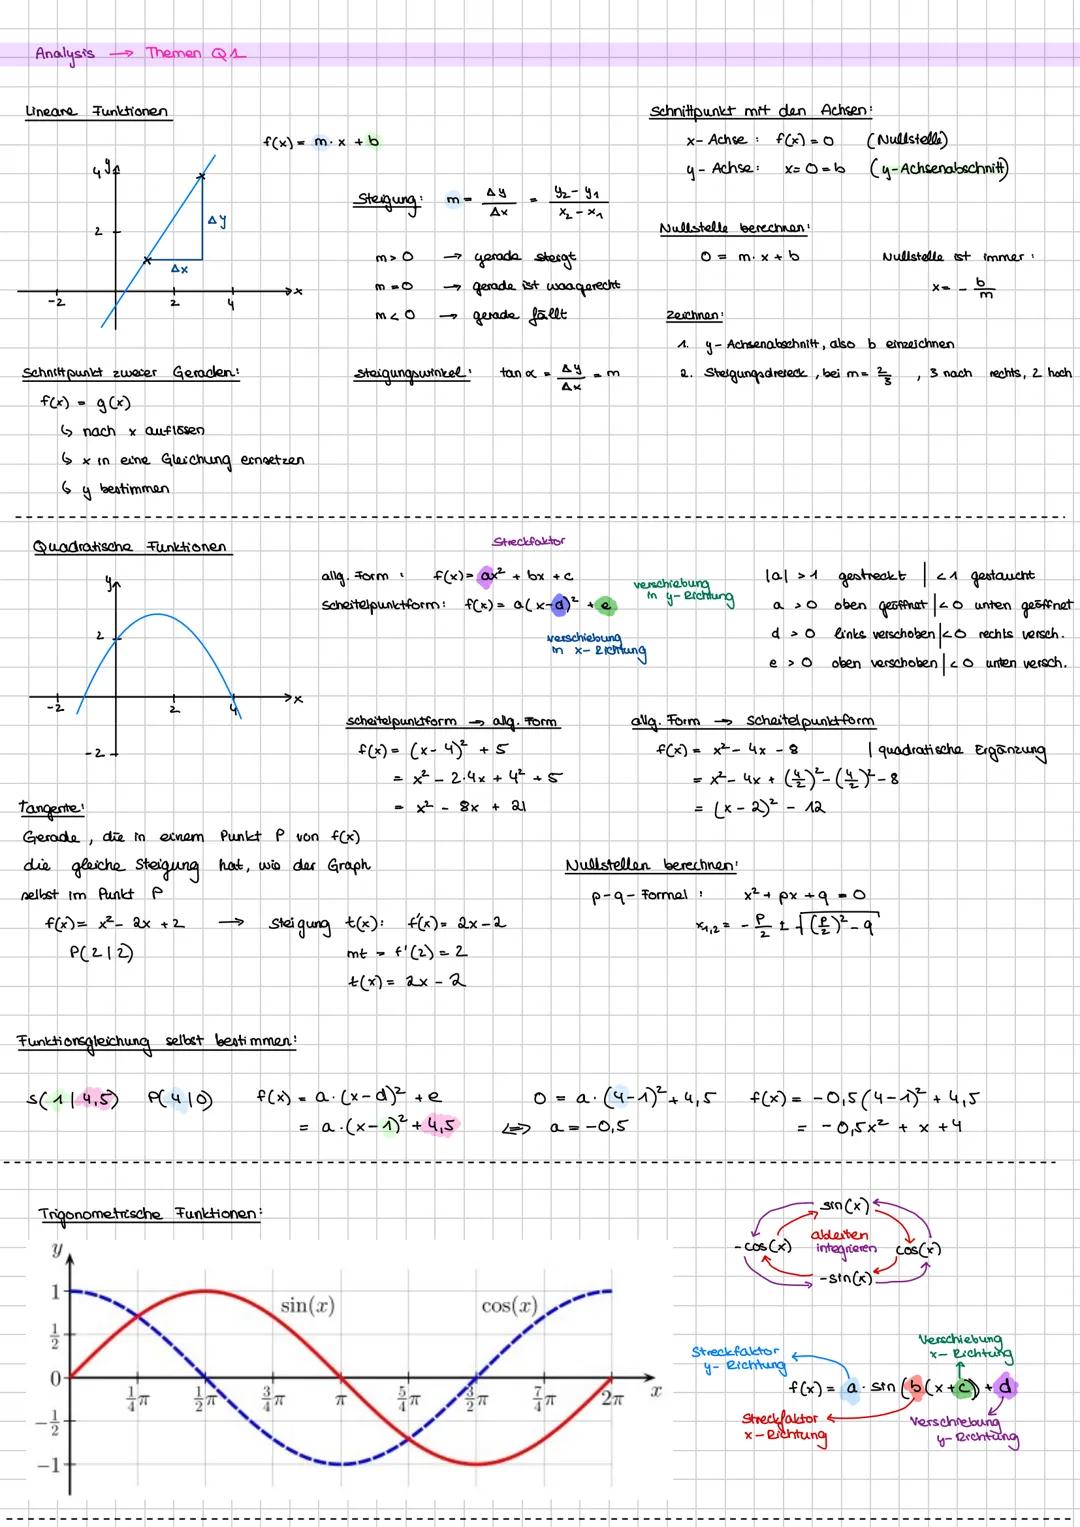 Analysis → Themen Q1
Lineare Funktionen
f(x) = m · x + b
y
4
2
Δy
Δx
-2
2
4
x
Steigung: m = Δy/Δx = (y₂ - y₁)/(x₂ - x₁)
m > 0 → gerade steigt
m = 0 → gerade ist waagerecht
m < 0 → gerade fällt
Steigungswinkel: tan α = Δy/Δx = m
Schnittpunkt mit den Achsen:
x-Achse: f(x) = 0 (Nullstelle)
y-Achse: x = 0 = b (y-Achsenabschnitt)
Nullstelle berechnen:
0 = m · x + b
Nullstelle ist immer:
x = - b/m
Zeichnen:
1. y-Achsenabschnitt, also b einzeichnen
2. Steigungsdreieck, bei m = 2/3, 3 nach rechts, 2 hoch
Schnittpunkt zweier Geraden:
f(x) = g(x)
↳ nach x auflösen
↳ x in eine Gleichung einsetzen
↳ y bestimmen
Quadratische Funktionen
y
2
-2
-2
2
4
x
Streckfaktor
allg. Form: f(x) = ax² + bx + c
Scheitelpunktform: f(x) = a(x-d)² + e
Verschiebung
in y-Richtung
Verschiebung
in x-Richtung
|a| > 1 gestreckt | < 1 gestaucht
a > 0 oben geöffnet | < 0 unten geöffnet
d > 0 links verschoben | < 0 rechts versch.
e > 0 oben verschoben | < 0 unten versch.
Scheitelpunktform → allg. Form
f(x) = (x - 4)² + 5
= x² - 2·4x + 4² + 5
= x² - 8x + 21
allg. Form → Scheitelpunktform
f(x) = x² - 4x - 8 | quadratische Ergänzung
= x² - 4x + (4/2)² - (4/2)² - 8
= (x - 2)² - 12
Tangente:
Gerade, die in einem Punkt P von f(x)
die gleiche Steigung hat, wie der Graph
selbst im Punkt P
f(x) = x² - 2x + 2 → Steigung t(x): f'(x) = 2x - 2
P(2|2)
mt = f'(2) = 2
t(x) = 2x - 2
Nullstellen berechnen:
p-q-Formel: x² + px + q = 0
x₁,₂ = - p/2 ± √((p/2)² - q)
Funktionsgleichung selbst bestimmen:
S(1|4,5) P(4|0) f(x) = a · (x-d)² + e
= a · (x-1)² + 4,5
0 = a · (4-1)² + 4,5
⇔ a = -0,5
f(x) = -0,5(4-1)² + 4,5
= -0,5x² + x + 4
Trigonometrische Funktionen:
y
1
1/2
0
-1/2
-1
sin(x)
cos(x)
1/4π
1/2π
3/4π
π
5/4π
3/2π
7/4π
2π
x
sin(x)
ableiten
-cos(x)
integrieren
cos(x)
-sin(x)
Streckfaktor
y-Richtung
Verschiebung
x-Richtung
f(x) = a · sin(b(x+c)) + d
Streckfaktor
x-Richtung
Verschiebung
y-Richtung